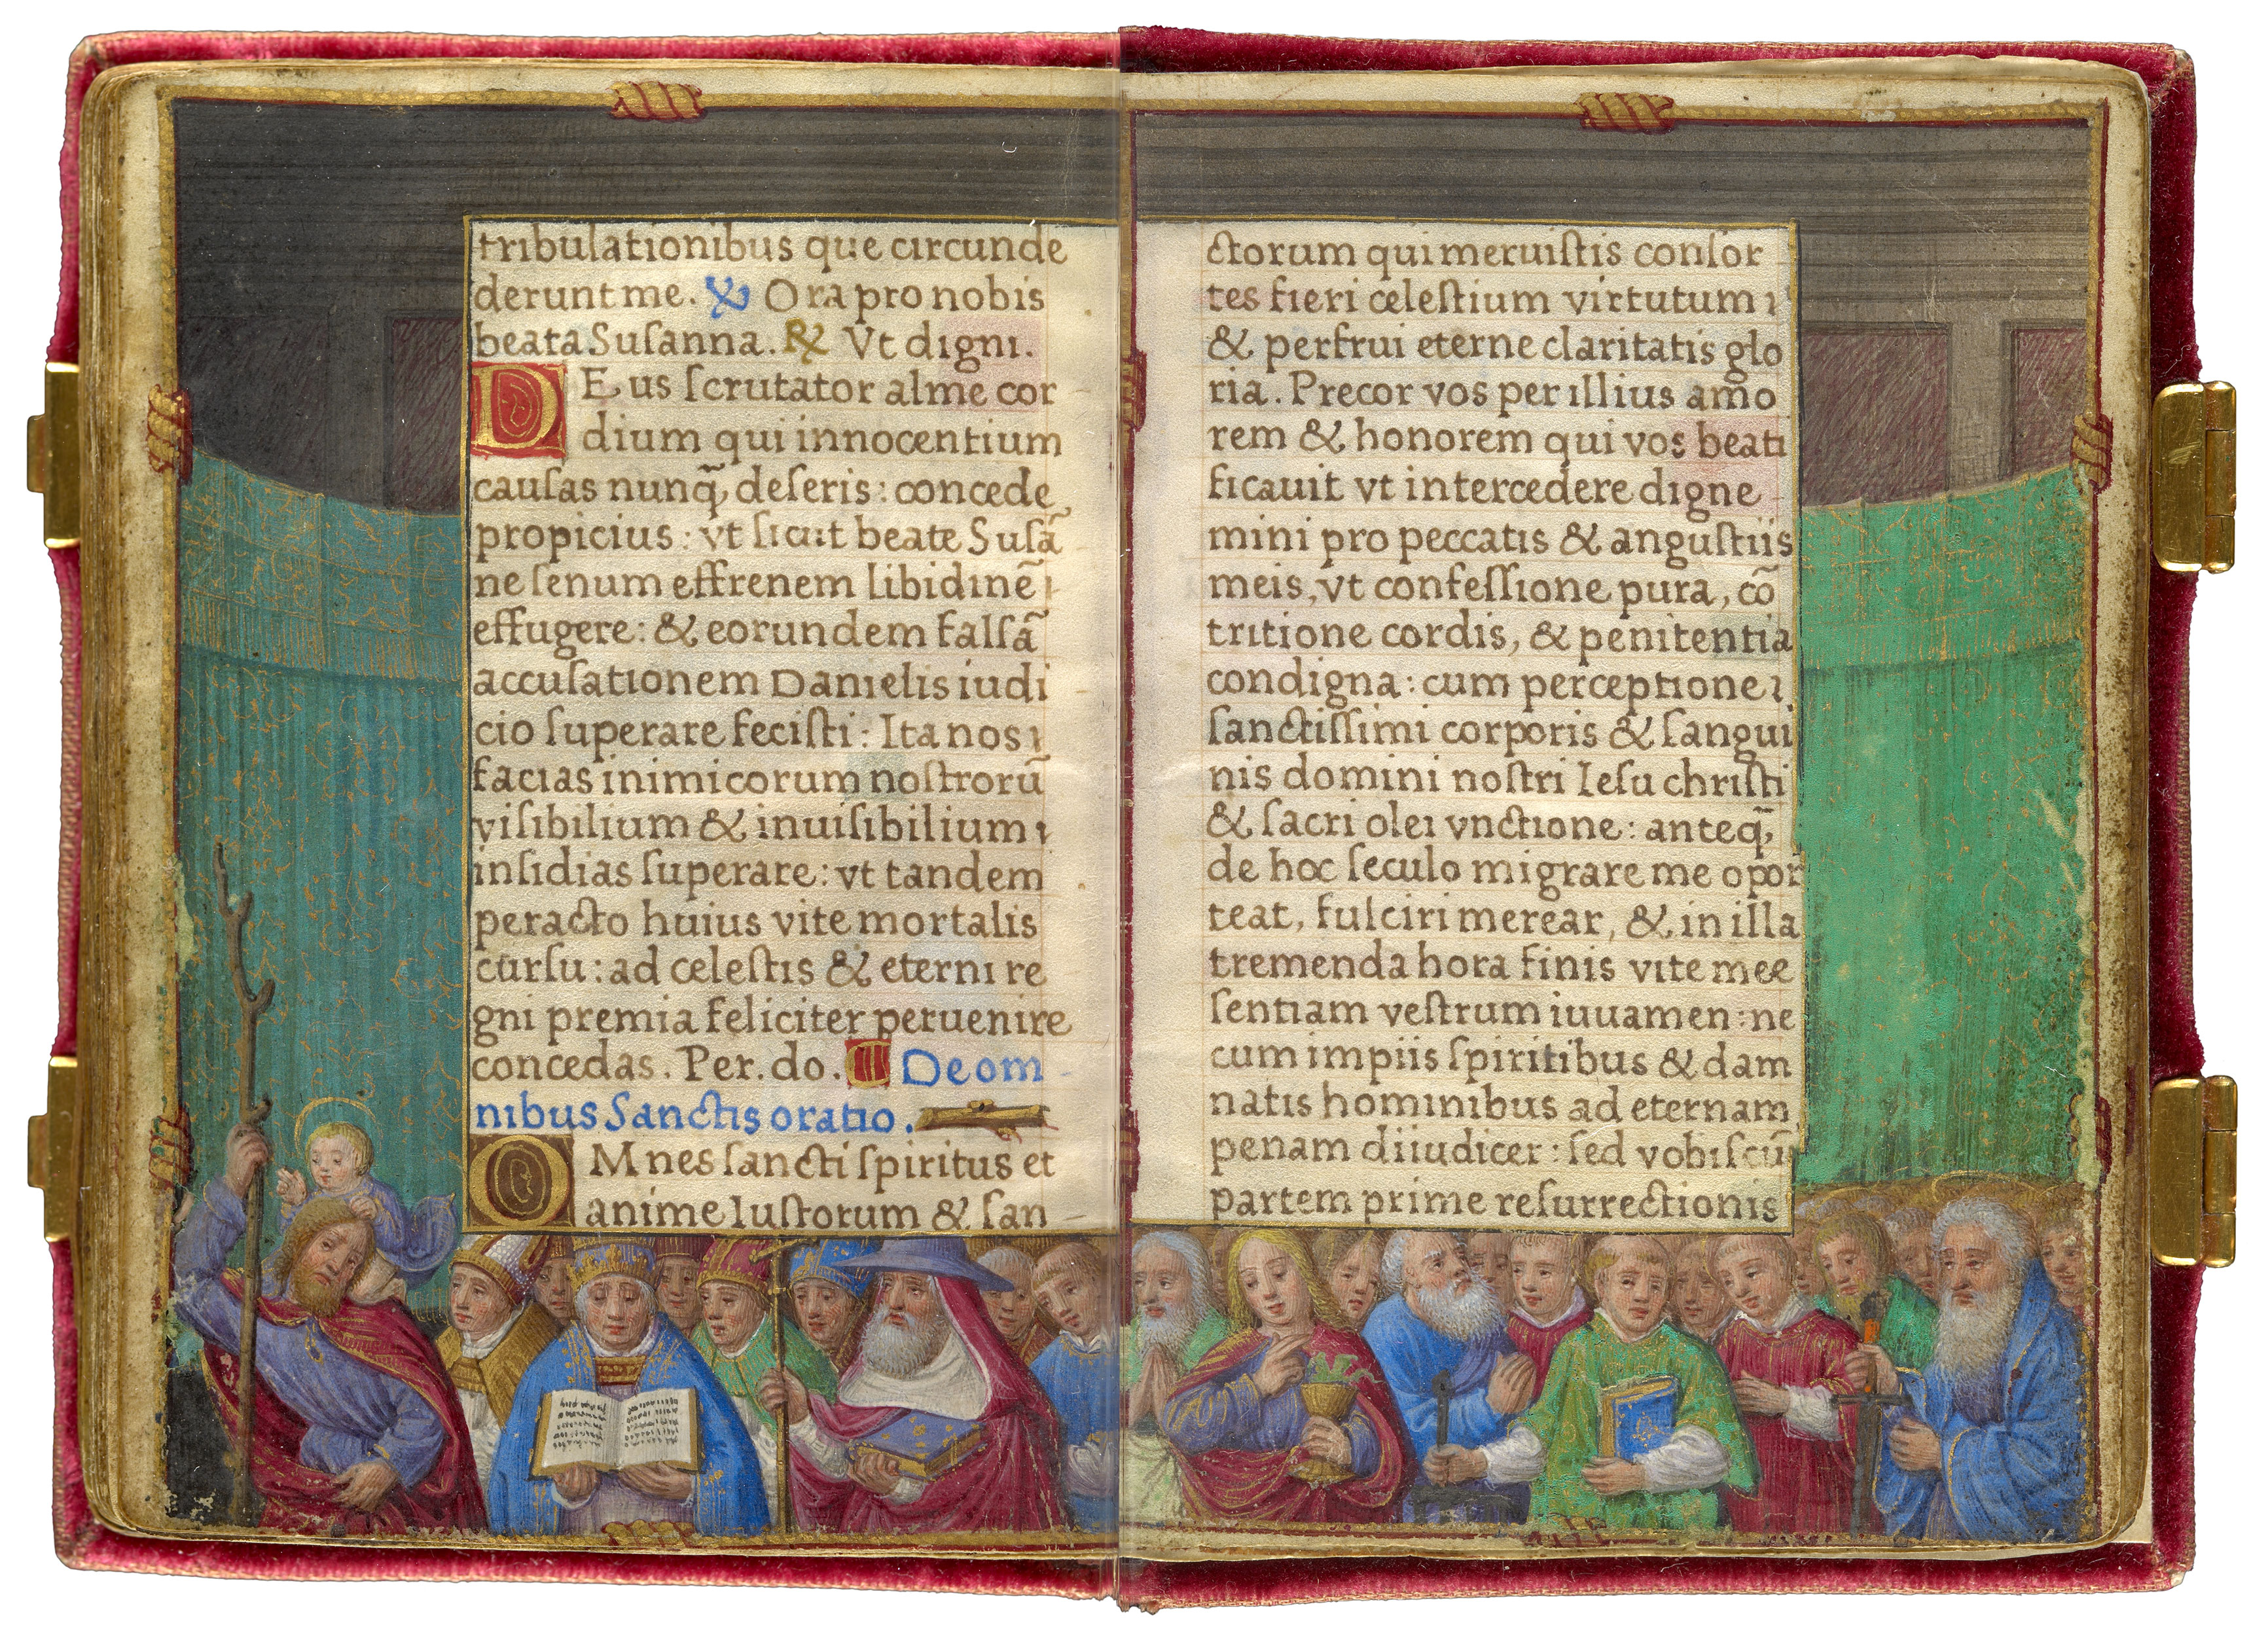 tribulationibus que circunde
derunt me. ℣ Ora pro nobis
beata Suſanna. ℟ Vt digni.
DEus ſcrutator alme cor
dium qui innocentium
cauſas nunq̃ deſeris: concede
propicius: vt ſicut beate Suſã
ne ſenum effrenem libidinẽ
effugere: & eorundem falſã
accuſationem Danielis iudi
cio ſuperare feciſti: Ita nos
facias inimicorum noſtrorũ
viſibilium & inuiſibilium
inſidias ſuperare: vt tandem
peracto huius vite mortalis
curſu: ad celeſtis & eterni re
gni premia feliciter peruenire
concedas. Per. do. De om
nibus Sanctis oratio.
OMnes ſancti ſpiritus et
anime Iuſtorum & ſan
ctorum qui meruiſtis conſor
tes fieri celeſtium virtutum
& perfrui eterne claritatis glo
ria. Precor vos per illius amo
rem & honorem qui vos beati
ficauit vt intercedere digne
mini pro peccatis & anguſtiis
meis, vt confeſſione pura, cõ
tritione cordis, & penitentia
condigna: cum perceptione
ſanctiſſimi corporis & ſangui
nis domini noſtri Ieſu chriſti
& ſacri olei vnctione: anteq̃
de hoc ſeculo migrare me opor
teat, fulciri merear, & in illa
tremenda hora finis vite mee
ſentiam veſtrum iuuamen: ne
cum impiis ſpiritibus & dam
natis hominibus ad eternam
penam diiudicer: ſed vobiſcũ
partem prime reſurrectionis